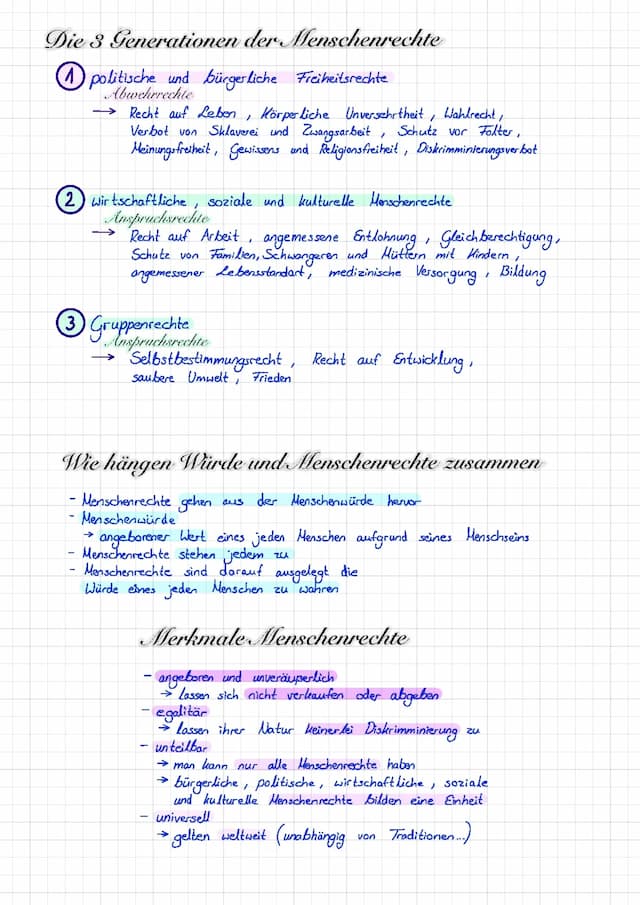 Die 3 Generationen der Menschenrechte
1 politische und bürgerliche Freiheitsrechte
Abwehrrechte
→ Recht auf Leben, Körperliche Unversehrtheit, Wahlrecht,
Verbot von Sklaverei und Zwangsarbeit, Schutz vor Folter,
Meinungsfreiheit, Gewissens und Religionsfreiheit, Diskrimminierungsverbot
2 wirtschaftliche, soziale und kulturelle Menschenrechte
Anspruchsrechte
→ Recht auf Arbeit, angemessene Entlohnung, Gleichberechtigung,
Schutz von Familien, Schwangeren und Müttern mit Kindern,
angemessener Lebensstandart, medizinische Versorgung, Bildung
3 Gruppenrechte
Anspruchsrechte
→ Selbstbestimmungsrecht, Recht auf Entwicklung,
saubere Umwelt, Frieden
Wie hängen Würde und Menschenrechte zusammen
- Menschenrechte gehen aus der Menschenwürde hervor
- Menschenwürde
→ angeborener Wert eines jeden Menschen aufgrund seines Menschseins
- Menschenrechte stehen jedem zu
- Menschenrechte sind darauf ausgelegt die
Würde eines jeden Menschen zu wahren
Merkmale Menschenrechte
- angeboren und unveräuperlich
→ lassen sich nicht verkaufen oder abgeben
- egalitär
→ lassen ihrer Natur keinerlei Diskrimminierung zu
- unteilbar
→ man kann nur alle Menschenrechte haben
→ bürgerliche, politische, wirtschaftliche, soziale
und kulturelle Menschenrechte bilden eine Einheit
- universell
→ gelten weltweit (unabhängig von Traditionen...)